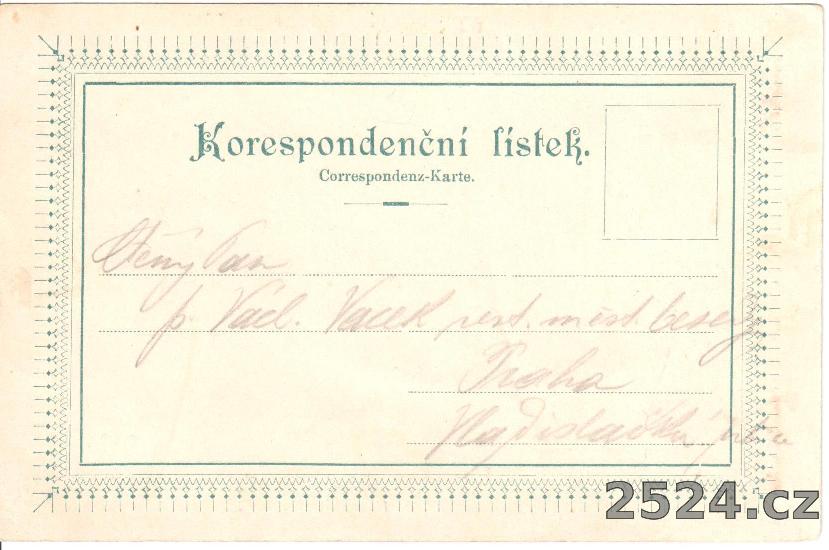 Korespondenční lístek.
Correspondenz-Karte.
Ctěný Pan
p. Václ. Vacek rest. měst. besedy
Praha
2524.cz